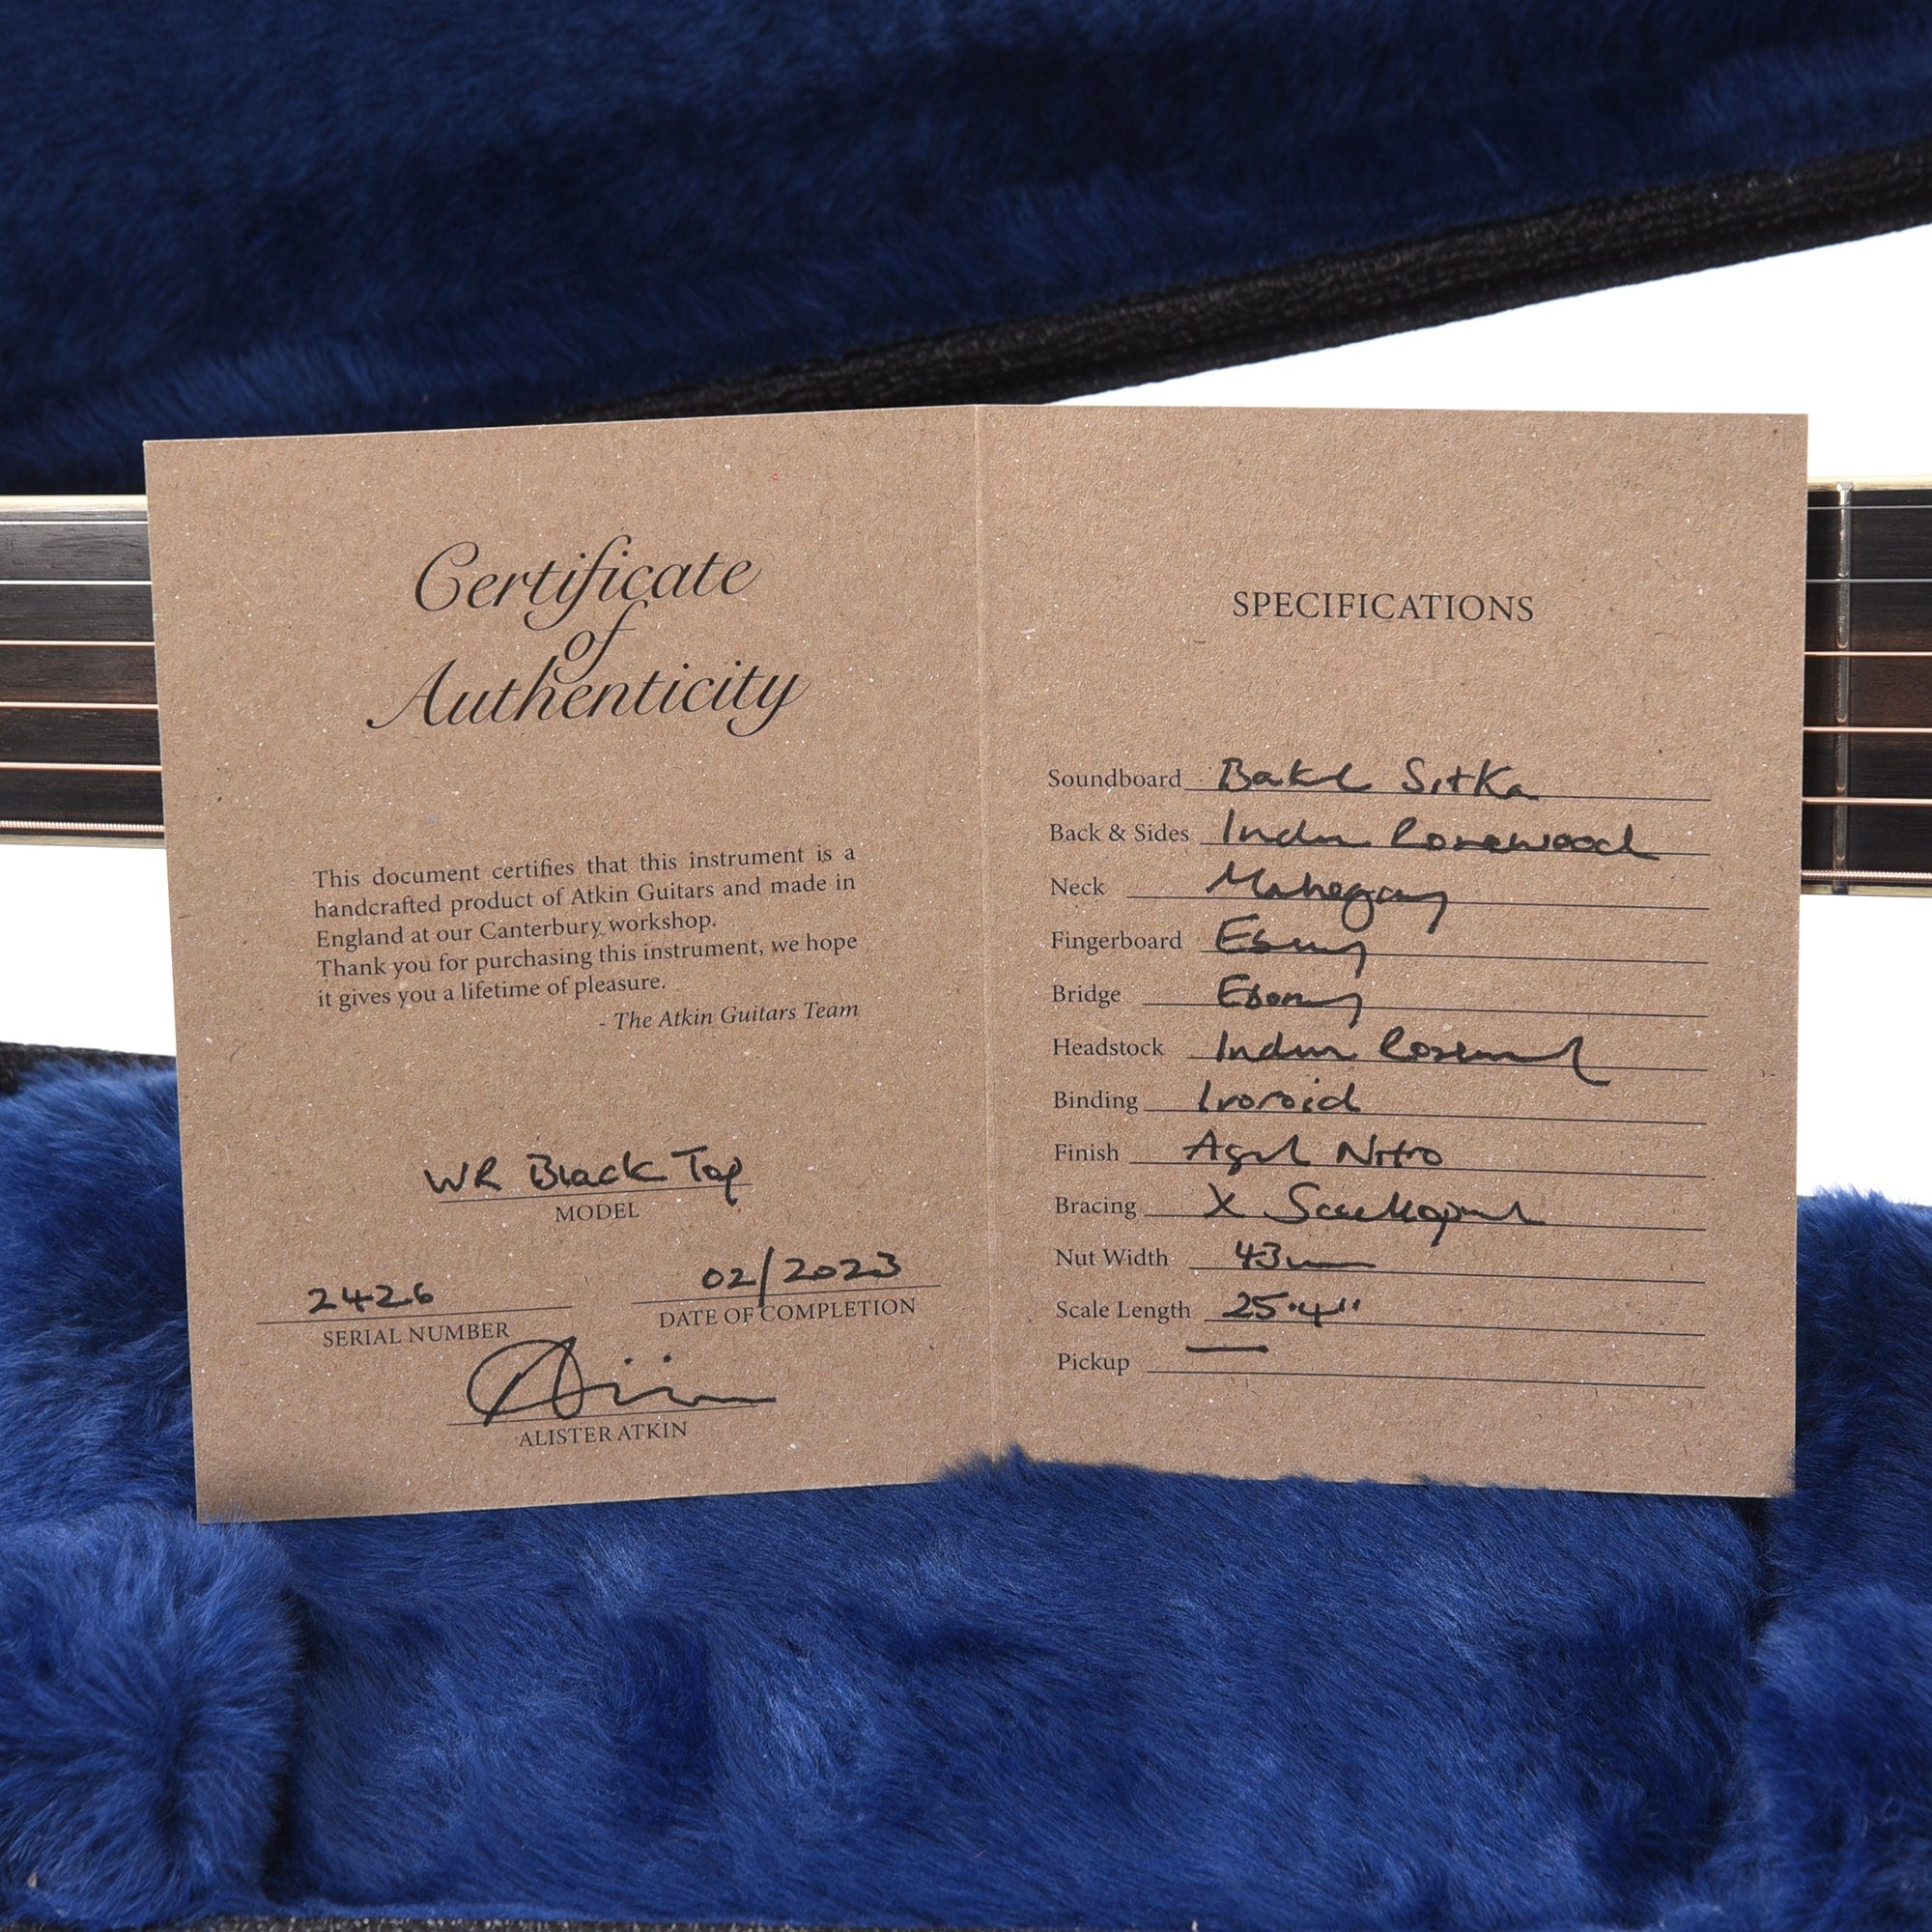 Certificate
of
Authenticity
This document certifies that this instrument is a
handcrafted product of Atkin Guitars and made in
England at our Canterbury workshop.
Thank you for purchasing this instrument, we hope
it gives you a lifetime of pleasure.
- The Atkin Guitars Team
WR Black Top
MODEL
2426
SERIAL NUMBER
02/2023
DATE OF COMPLETION
ALISTER ATKIN
SPECIFICATIONS
Soundboard Baked Sitka
Back & Sides Indian Rosewood
Neck Mahogany
Fingerboard Ebony
Bridge Ebony
Headstock Indian Rosewood
Binding Ivoroid
Finish Aged Nitro
Bracing X Scalloped
Nut Width 43mm
Scale Length 25.4"
Pickup —